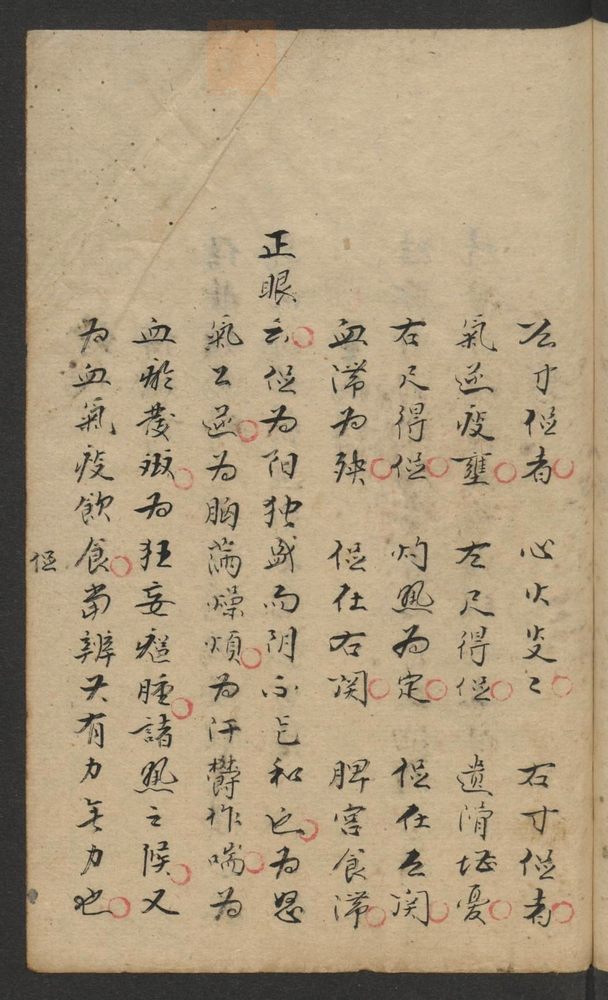 左寸促者　心火炎〻　右寸促者
氣逆痰壅　左尺得促　遺滑堪憂
右尺得促　灼熱為定　促在左関
血滯為殃　促在右関　脾宮食滯
正眼云促為陽独盛而陰不能和也為怒
氣上逆為胸滿燥煩為汗欝作喘為
血瘀發斑為狂妄癰腫諸熱之候又
為血氣痰飲食當辨其有力無力也
促